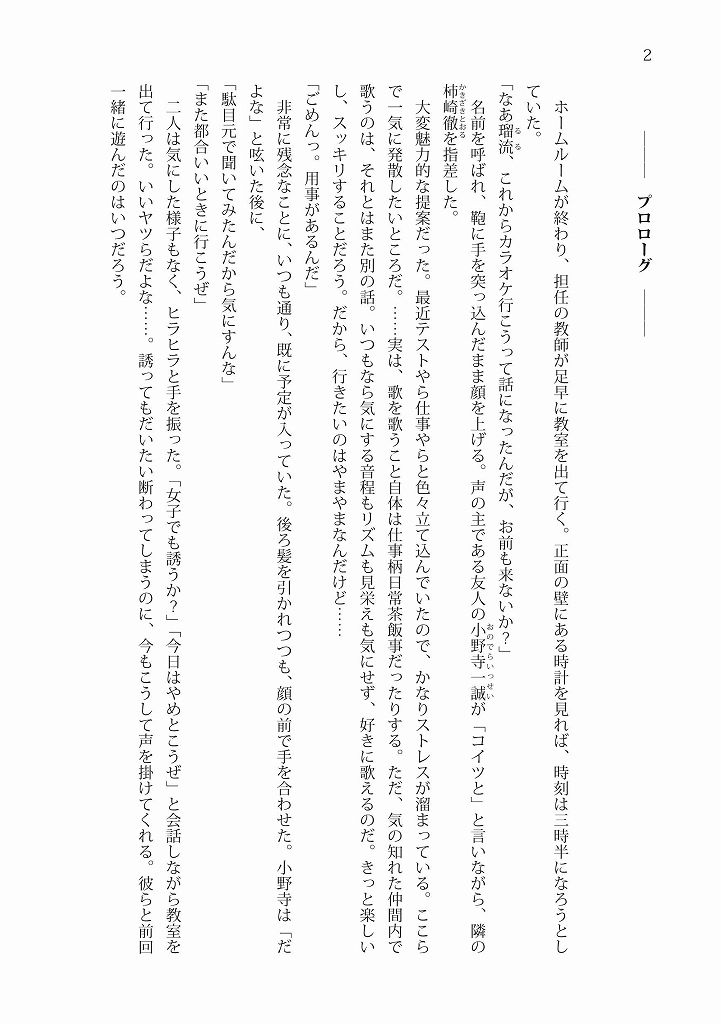 2
プロローグ
ホームルームが終わり、担任の教師が足早に教室を出て行く。正面の壁にある時計を見れば、時刻は三時半になろうとし
ていた。
「なあ瑠流、これからカラオケ行こうって話になったんだが、お前も来ないか？」
名前を呼ばれ、鞄に手を突っ込んだまま顔を上げる。声の主である友人の小野寺一誠が「コイツと」と言いながら、隣の
柿崎徹を指差した。
大変魅力的な提案だった。最近テストやら仕事やらと色々立て込んでいたので、かなりストレスが溜まっている。ここら
で一気に発散したいところだ。……実は、歌を歌うこと自体は仕事柄日常茶飯事だったりする。ただ、気の知れた仲間内で
歌うのは、それとはまた別の話。いつもなら気にする音程もリズムも見栄えも気にせず、好きに歌えるのだ。きっと楽しい
し、スッキリすることだろう。だから、行きたいのはやまやまなんだけど……
「ごめんっ。用事があるんだ」
非常に残念なことに、いつも通り、既に予定が入っていた。後ろ髪を引かれつつも、顔の前で手を合わせた。小野寺は「だ
よな」と呟いた後に、
「駄目元で聞いてみたんだから気にすんな」
「また都合いいときに行こうぜ」
二人は気にした様子もなく、ヒラヒラと手を振った。「女子でも誘うか？」「今日はやめとこうぜ」と会話しながら教室を
出て行った。いいヤツらだよな……。誘ってもだいたい断わってしまうのに、今もこうして声を掛けてくれる。彼らと前回
一緒に遊んだのはいつだろう。